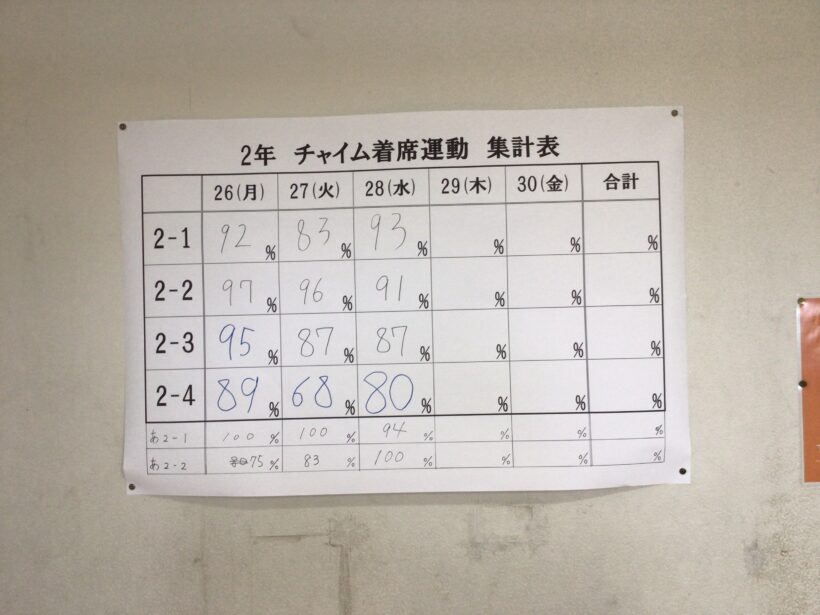 2年 チャイム着席運動 集計表
26(月) 27(火) 28(水) 29(木) 30(金) 合計
2-1 92% 83% 93% % % %
2-2 97% 96% 91% % % %
2-3 95% 87% 87% % % %
2-4 89% 68% 80% % % %
あ2-1 100% 100% 94% % % %
あ2-2 75% 83% 100% % % %